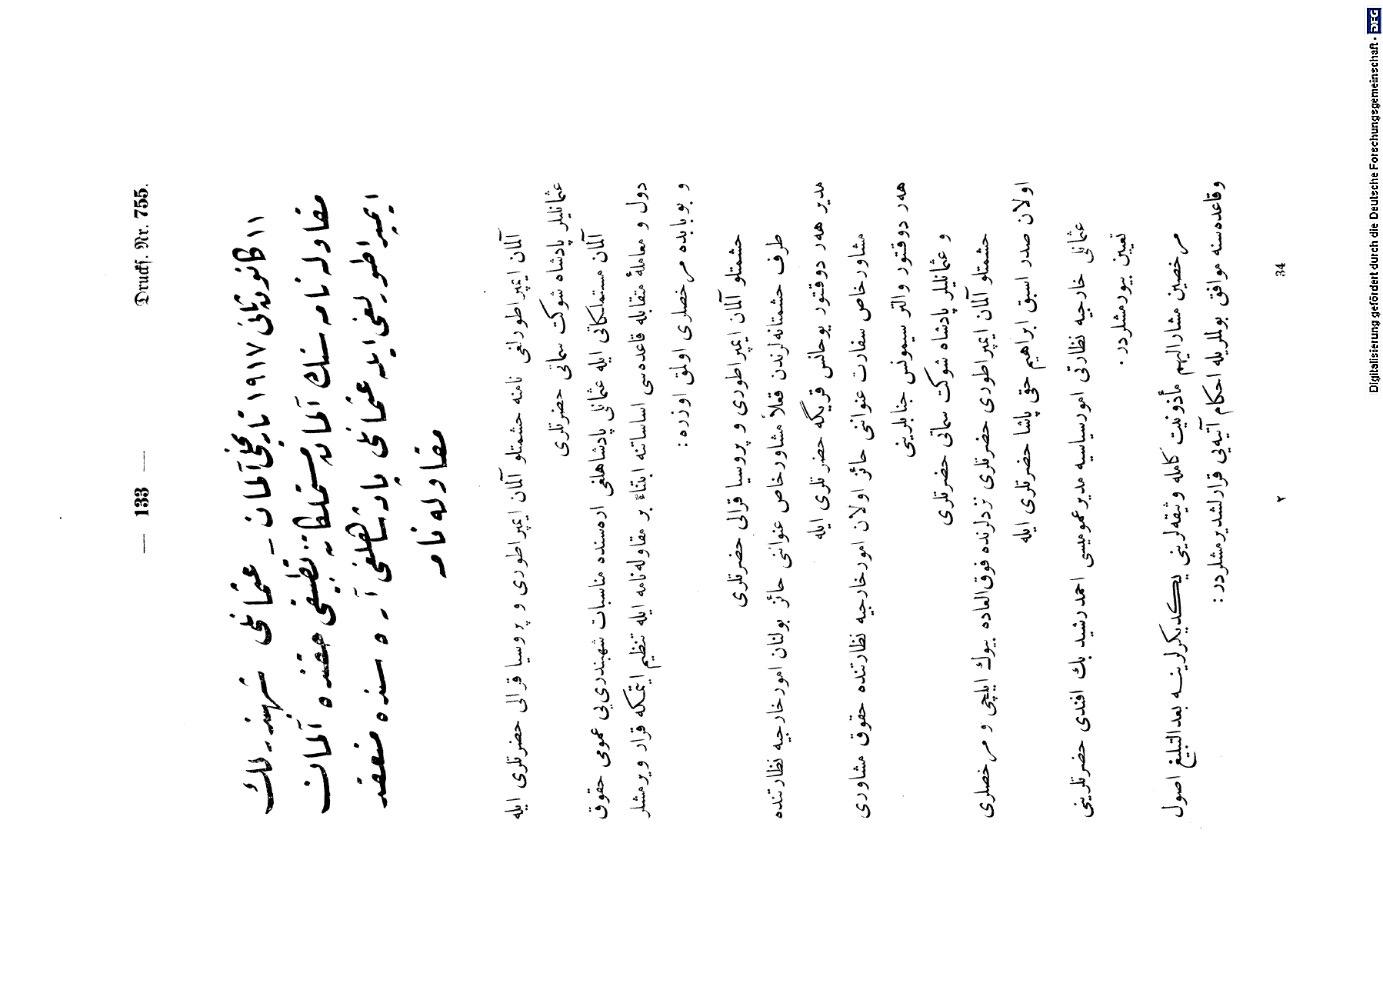 — 133 —
Drucks. Nr. 755.
١١ كانون ثانى ١٩١٧ تاريخلى آلمان ـ عثمانلى شهبندرلك
مقاوله نامه سنك آلمان مستملكاتنه تطبيقى حقنده آلمان
ايمپراطورلغى ايله عثمانلى پادشاهلغى آره سنده منعقد
مقاوله نامه
آلمان ايمپراطورلغى نامنه حشمتلو آلمان ايمپراطورى و پروسيا قرالى حضرتلرى ايله
عثمانليلر پادشاه شوكت سماتى حضرتلرى
آلمان مستملكاتى ايله عثمانلى پادشاهلغى اره سنده مناسبات شهبندرى يى عمومى حقوق
دول و معاملهٔ متقابله قاعده سى اساساتنه ابتناءً بر مقاوله نامه ايله تنظيم ايتمكه قرار ويرمشلر
و بو بابده مرخصلرى اولمق اوزره :
حشمتلو آلمان ايمپراطورى و پروسيا قرالى حضرتلرى
طرف حشمتانه لرندن فعلاً مشاور خاص عنوانى حائز بولنان امور خارجيه نظارتنده
مدير هەر دوقتور يوحانس قريگه حضرتلرى ايله
مشاور خاص سفارت عنوانى حائز اولان امور خارجيه نظارتنده حقوق مشاورى
هەر دوقتور والتر سيمونس جنابلرينى
و عثمانليلر پادشاه شوكت سماتى حضرتلرى
حشمتلو آلمان ايمپراطورى حضرتلرى نزدلرنده فوق العاده بيوك ايلچى و مرخصلرى
اولان صدر اسبق ابراهيم حقى پاشا حضرتلرى ايله
عثمانلى خارجيه نظارتى امور سياسيه مدير عموميسى احمد رشيد بك افندى حضرتلرينى
تعيين بيورمشلردر .
مرخصين مشار اليهم مأذونيت كامله وثيقه لرينى يكديكرلرينه بعد التبليغ اصول
وقاعده سنه موافق بولنلريله احكام آتيه يى قرارلشديرمشلردر :
٢
34
Digitalisierung gefördert durch die Deutsche Forschungsgemeinschaft - DFG